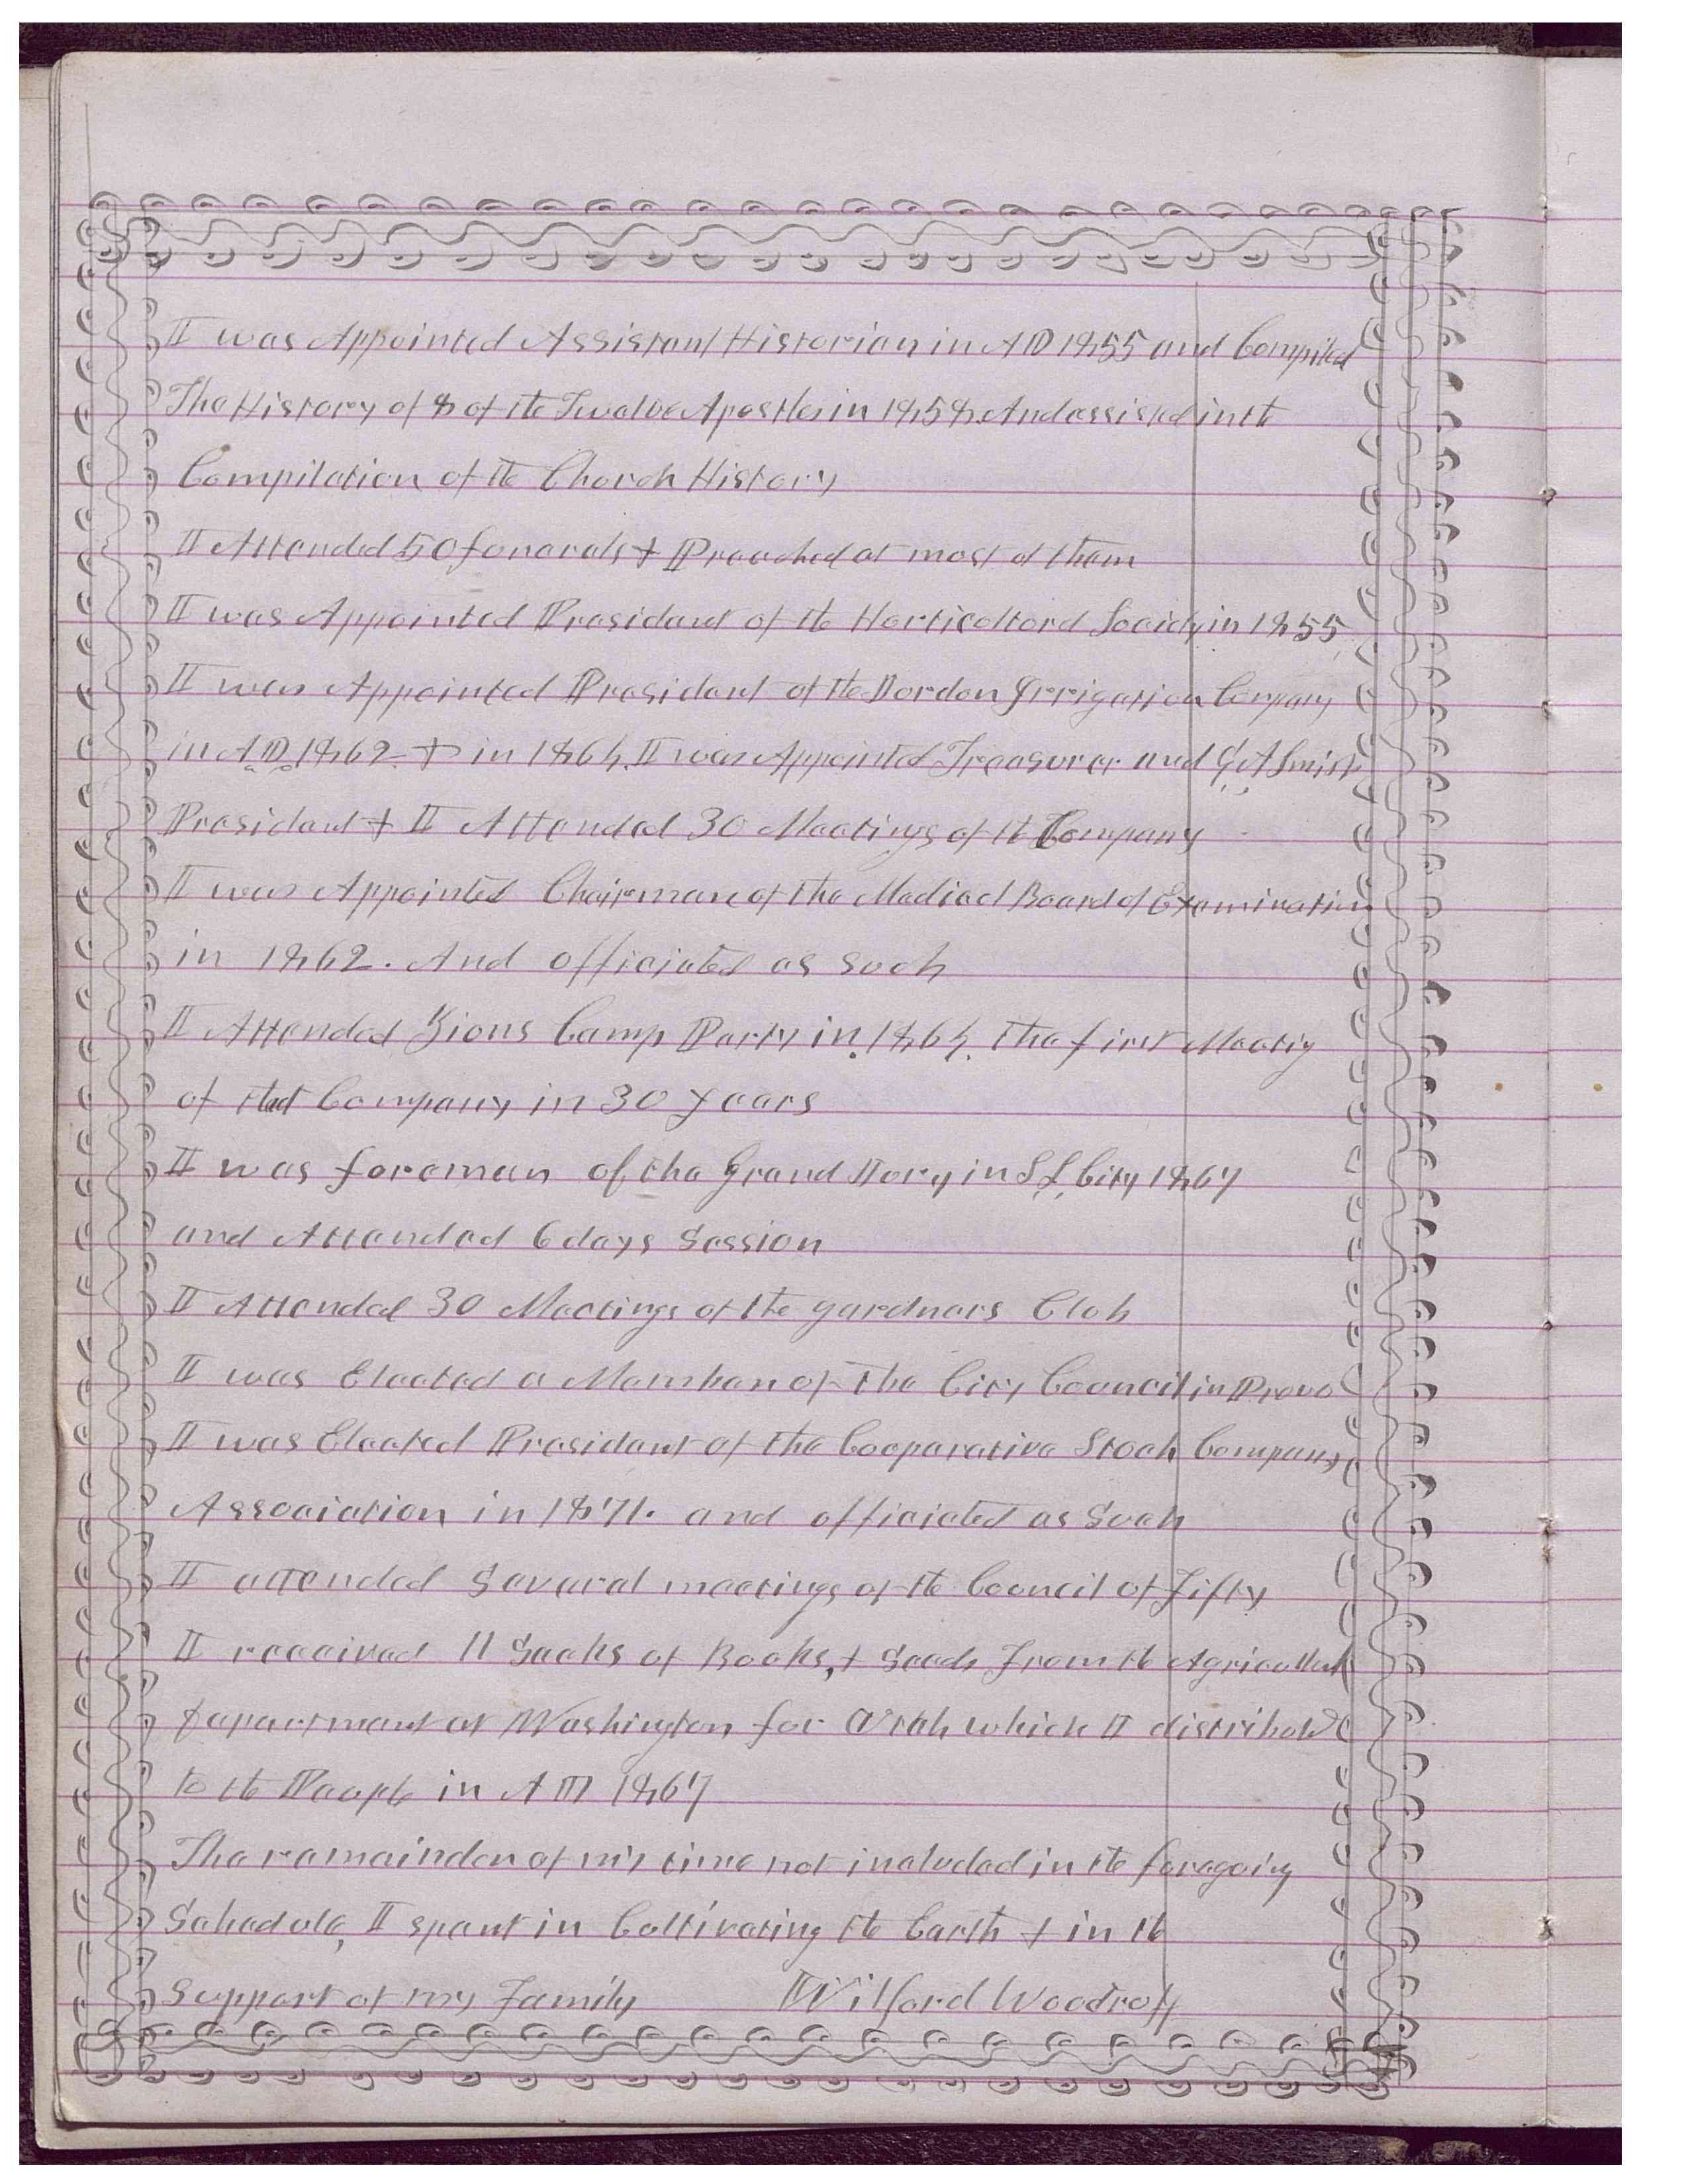 I was Appointed Assistant Historian in AD 1855 and Compiled
The History of 8 of the Twelve Apostles in 1858. And assisted in the
Compilation of the Church History
I Attended 50 funerals & Preached at most of them
I was Appointed President of the Horticultural Society in 1855
I was Appointed President of the Jordon Irrigation Company
in AD. 1862. & in 1864. I was Appointed Treasurer and G. A Smith
President & I Attended 30 Meetings of the Company
I was Appointed Chairman of the Medical Board of Examination
in 1862. And officiated as such
I Attended Zions Camp Party in. 1864. the first Meetig
of that Company in 30 years
I was foreman of the Grand Jury in S. L. City 1867
and Attended 6 days Session
I Attended 30 Meetings of the gardners Club
I was Elected a Member of the City Council in Provo
I was Elected President of the Cooperative Stock Company
Association in 1871. and officiated as Such
I attended Several meetings of the Council of Fifty
I received 11 Sacks of Books, & Seeds from the Agricultural
department at Washington for Utah which I distributed
to the People in AD 1867
The remainder of my time not included in the foregoing
Schedule, I spent in Cultivating the Earth & in the
Support of my Family Wilford Woodruff